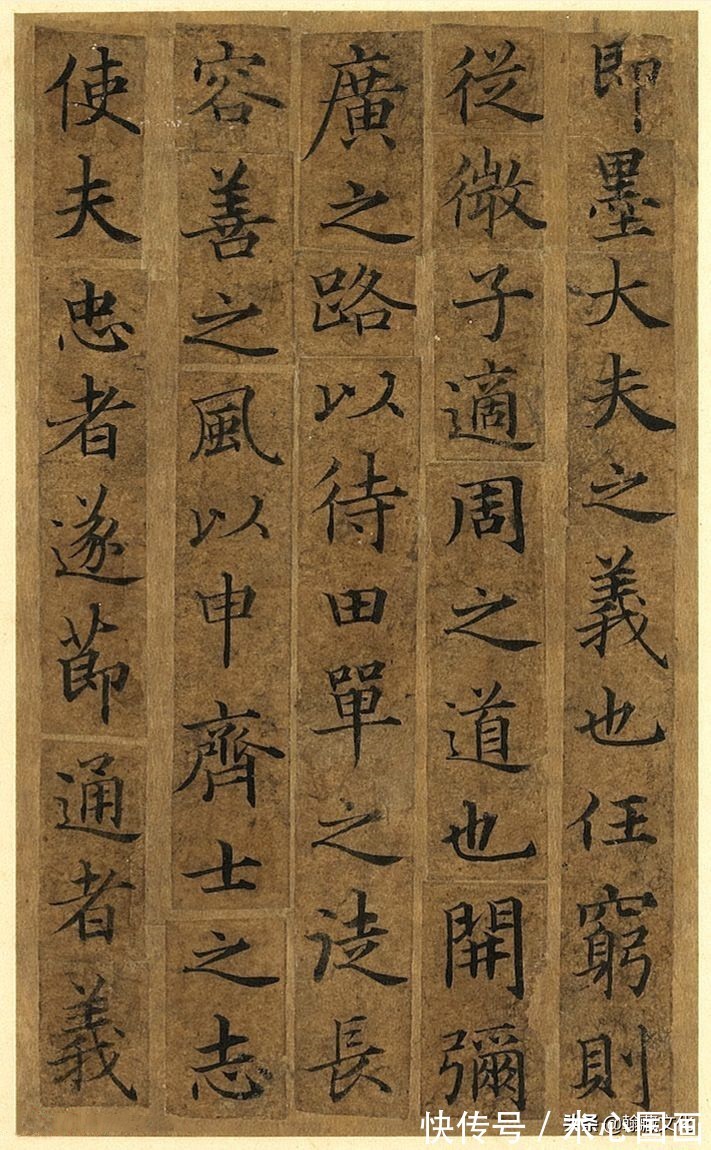 即墨大夫之義也任窮則
從微子適周之道也開彌
廣之路以待田單之徒長
容善之風以申齊士之志
使夫忠者遂節通者義
快传号 /